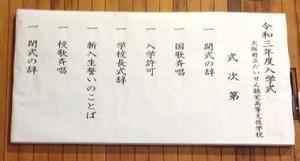 令和三年度入学式
大阪府立だいせん聴覚高等支援学校
式次第
一 開式の辞
一 国歌斉唱
一 入学許可
一 学校長式辞
一 新入生誓いのことば
一 校歌斉唱
一 閉式の辞